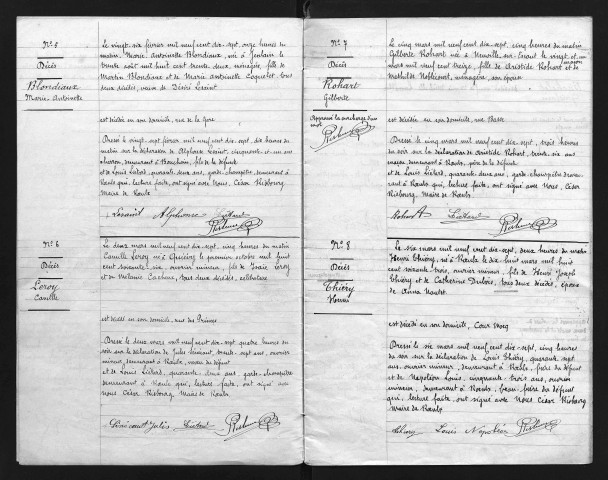 N° 5
Décès
Blondiaux
Marie, Antoinette
Le vingt-six février mil neuf cent dix-sept, onze heures du
matin, Marie, Antoinette Blondiaux, née à Jenlain le
trente août mil huit cent trente deux, ménagère, fille de
Martin Blondiaux et de Marie Antoinette Caquelet tous
deux décédés, veuve de Désiré Lesaint
est décédée en son domicile, rue de la Gare
Dressé le vingt-sept février mil neuf cent dix-sept, dix heures du
matin sur la déclaration de Alphonse Lesaint, cinquante-et-un ans
demeurant à Trouchain, fils de la défunte
et de Louis Liétard, quarante-deux ans, garde-champêtre, demeurant à
Rœulx qui, lecture faite, ont signé avec Nous, César Risbourg
Maire de Rœulx
Lesaint Alphonse Liétard
N° 6
Décès
Leroy
Camille
Le deux mars mil neuf cent dix-sept, cinq heures du matin
Camille Leroy né à Quiévy le premier octobre mil huit
cent soixante-six, ouvrier mineur, fils de Isaïe Leroy
et de Mélanie Cachera, tous deux décédés, célibataire
est décédé en son domicile, rue des Prisces
Dressé le deux mars mil neuf cent dix-sept quatre heures du
soir sur la déclaration de Jules Sénécaut, trente-sept ans, ouvrier
mineur, demeurant à Rœulx, neveu du défunt
et de Louis Liétard, quarante-deux ans, garde-champêtre
demeurant à Rœulx, qui, lecture faite, ont signé avec
nous César Risbourg, Maire de Rœulx
Sénécaut Jules Liétard
N° 7
Décès
Rohart
Gilberte
Approuvé la surcharge d'un
mot
Le cinq mars mil neuf cent dix-sept, cinq heures du matin
Gilberte Rohart née à Neuville-sur-Escaut le vingt et un
mars mil neuf cent treize, fille de Aristide Rohart et de
Mathilde Noblecourt, ménagère, son épouse
est décédée en son domicile, rue Basse
Dressé le cinq mars mil neuf cent dix-sept, trois heures
du soir sur la déclaration de Aristide Rohart, trente-six ans
demeurant à Rœulx, père de la défunte
et de Louis Liétard, quarante-deux ans, garde-champêtre demeu-
rant à Rœulx, qui, lecture faite, ont signé avec Nous, César
Risbourg, Maire de Rœulx
Rohart A Liétard
N° 8
Décès
Thiéry
Henri
Le six mars mil neuf cent dix-sept, deux heures du matin
Henri Thiéry, né à Rœulx le dix-huit mars mil huit
cent soixante-trois, ouvrier mineur, fils de Henri Joseph
Thiéry et de Catherine Dubois, tous deux décédés, époux
de Anna Nautet
est décédé en son domicile, Cour Moeg
Dressé le six mars mil neuf cent dix-sept, cinq heures
du soir sur la déclaration de Louis Thiéry, quarante-sept
ans, ouvrier mineur, demeurant à Rœulx, frère du défunt
et de Napoléon Louis, cinquante-trois ans, ouvrier
mineur, demeurant à Rœulx, beau-frère du défunt
qui, lecture faite, ont signé avec Nous César Risbourg
Maire de Rœulx
Thiéry Louis Napoléon